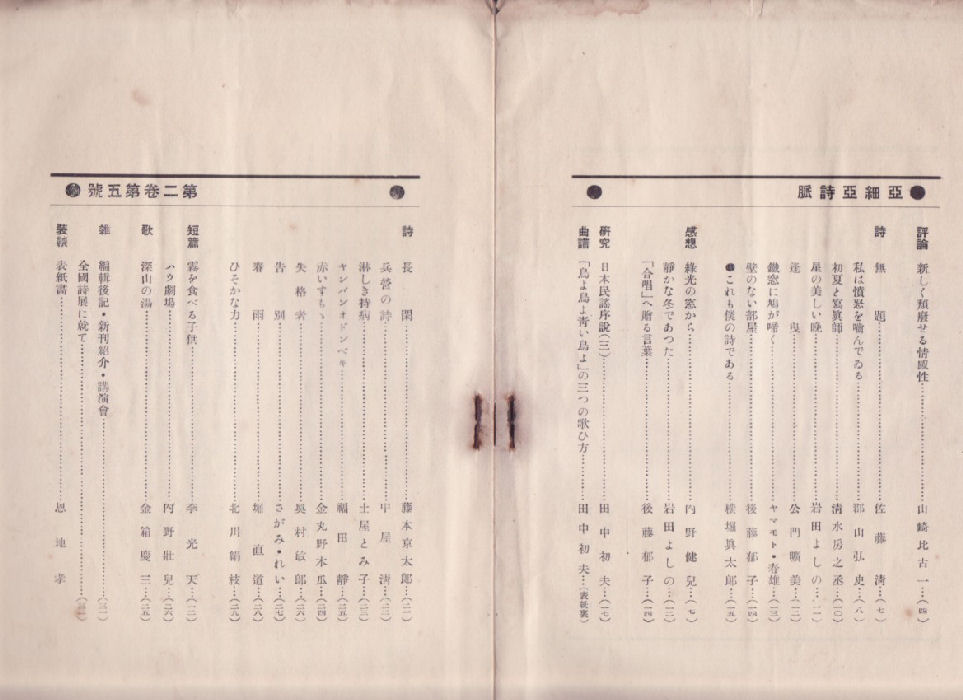 亞細亞詩脈
評論 新しく頽廢せる情感性 山崎比古一 (四)
詩 無題 佐藤清 (七)
私は憤怒を噛んでゐる 郡山弘史 (八)
初夏と寫眞師 清水房之丞 (一〇)
星の美しい晩 岩田よしの
逢曳 公門曠美 (一二)
鐵窓に鳩が啼く ヤマモト・春雄 (一三)
壁のない部屋 後藤郁子 (一四)
●これも僕の詩である 横堀眞太郎 (一五)
感想 綠光の窓から 内野健兒 (七)
靜かな冬であつた 岩田よしの (一三)
「合唱」へ贈る言葉 後藤郁子 (一四)
研究 日本民謠序說(三) 田中初夫 (一七)
曲譜 「鳥よ鳥よ靑い鳥よ」の三つの歌ひ方 田中初夫 (表紙裏)
第二卷第五號
詩 長閑 藤本京太郎
兵營の詩 中屋清
淋しき持病 土屋とみ子
ヤンバンオドンベキ 福田靜 (二五)
赤いすもゝ 金丸野木瓜 (二四)
失格者 奧村敏郎 (二六)
告別 さがみ・れい (二七)
春雨 堀直道 (二八)
ひそかな力 北川絹枝 (二九)
短篇 雲を食べる子供 李光天
ハウ劇場 内野壯兒 (二六)
歌 深山の湯 金箱慶三 (二五)
雜 編輯後記・新刊紹介・講演會
全國詩展に就て
裝幀 表紙畵 恩地孝